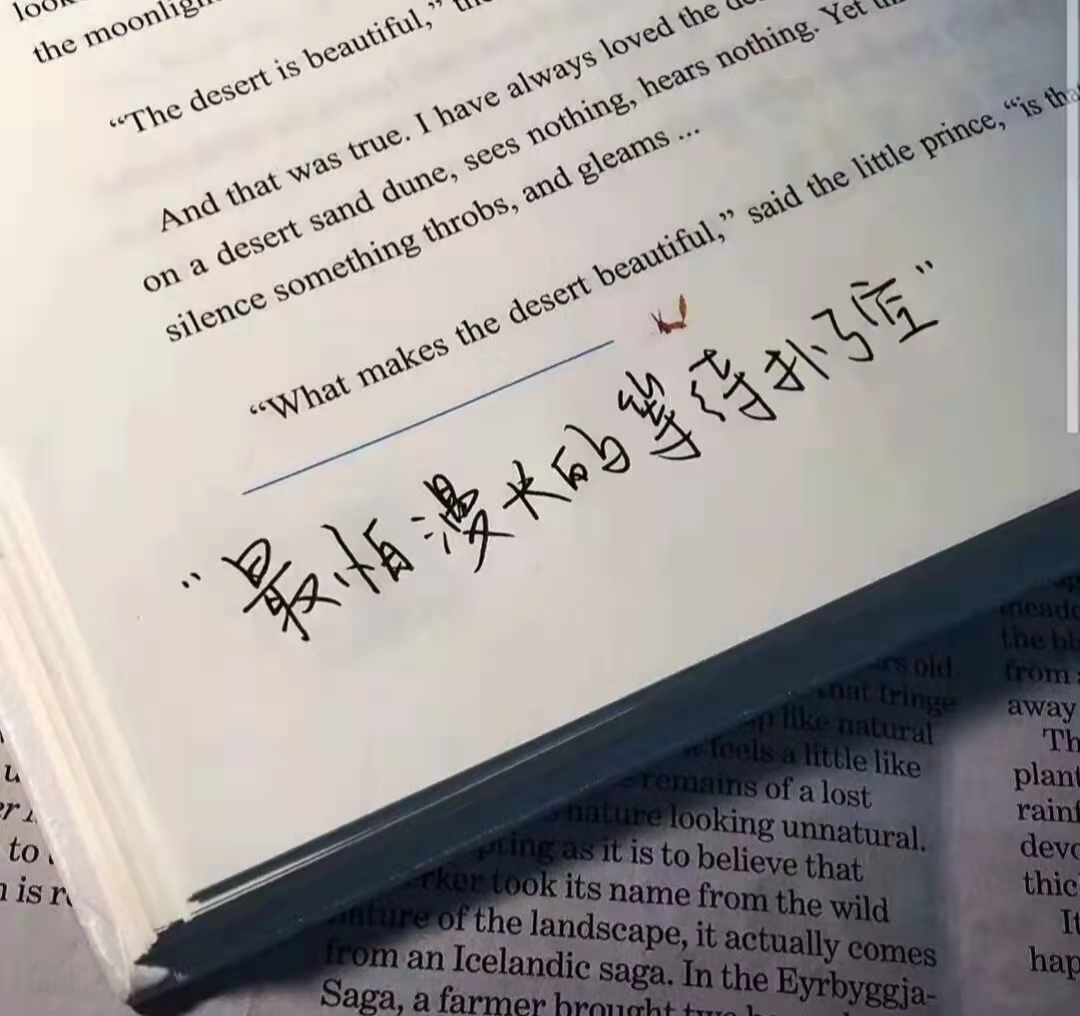 the moonligh
“The desert is beautiful,”
And that was true. I have always loved the
on a desert sand dune, sees nothing, hears nothing. Yet
silence something throbs, and gleams ...
“What makes the desert beautiful,” said the little prince, “is tha
“最怕漫长的等待扑了空”
to
is
old.
that fringe
like natural
feels a little like
remains of a lost
nature looking unnatural.
pting as it is to believe that
rker took its name from the wild
nature of the landscape, it actually comes
from an Icelandic saga. In the Eyrbyggja-
Saga, a farmer brought two
meado
the bl
from
away
Th
plant
rainf
devo
thic
It
hap